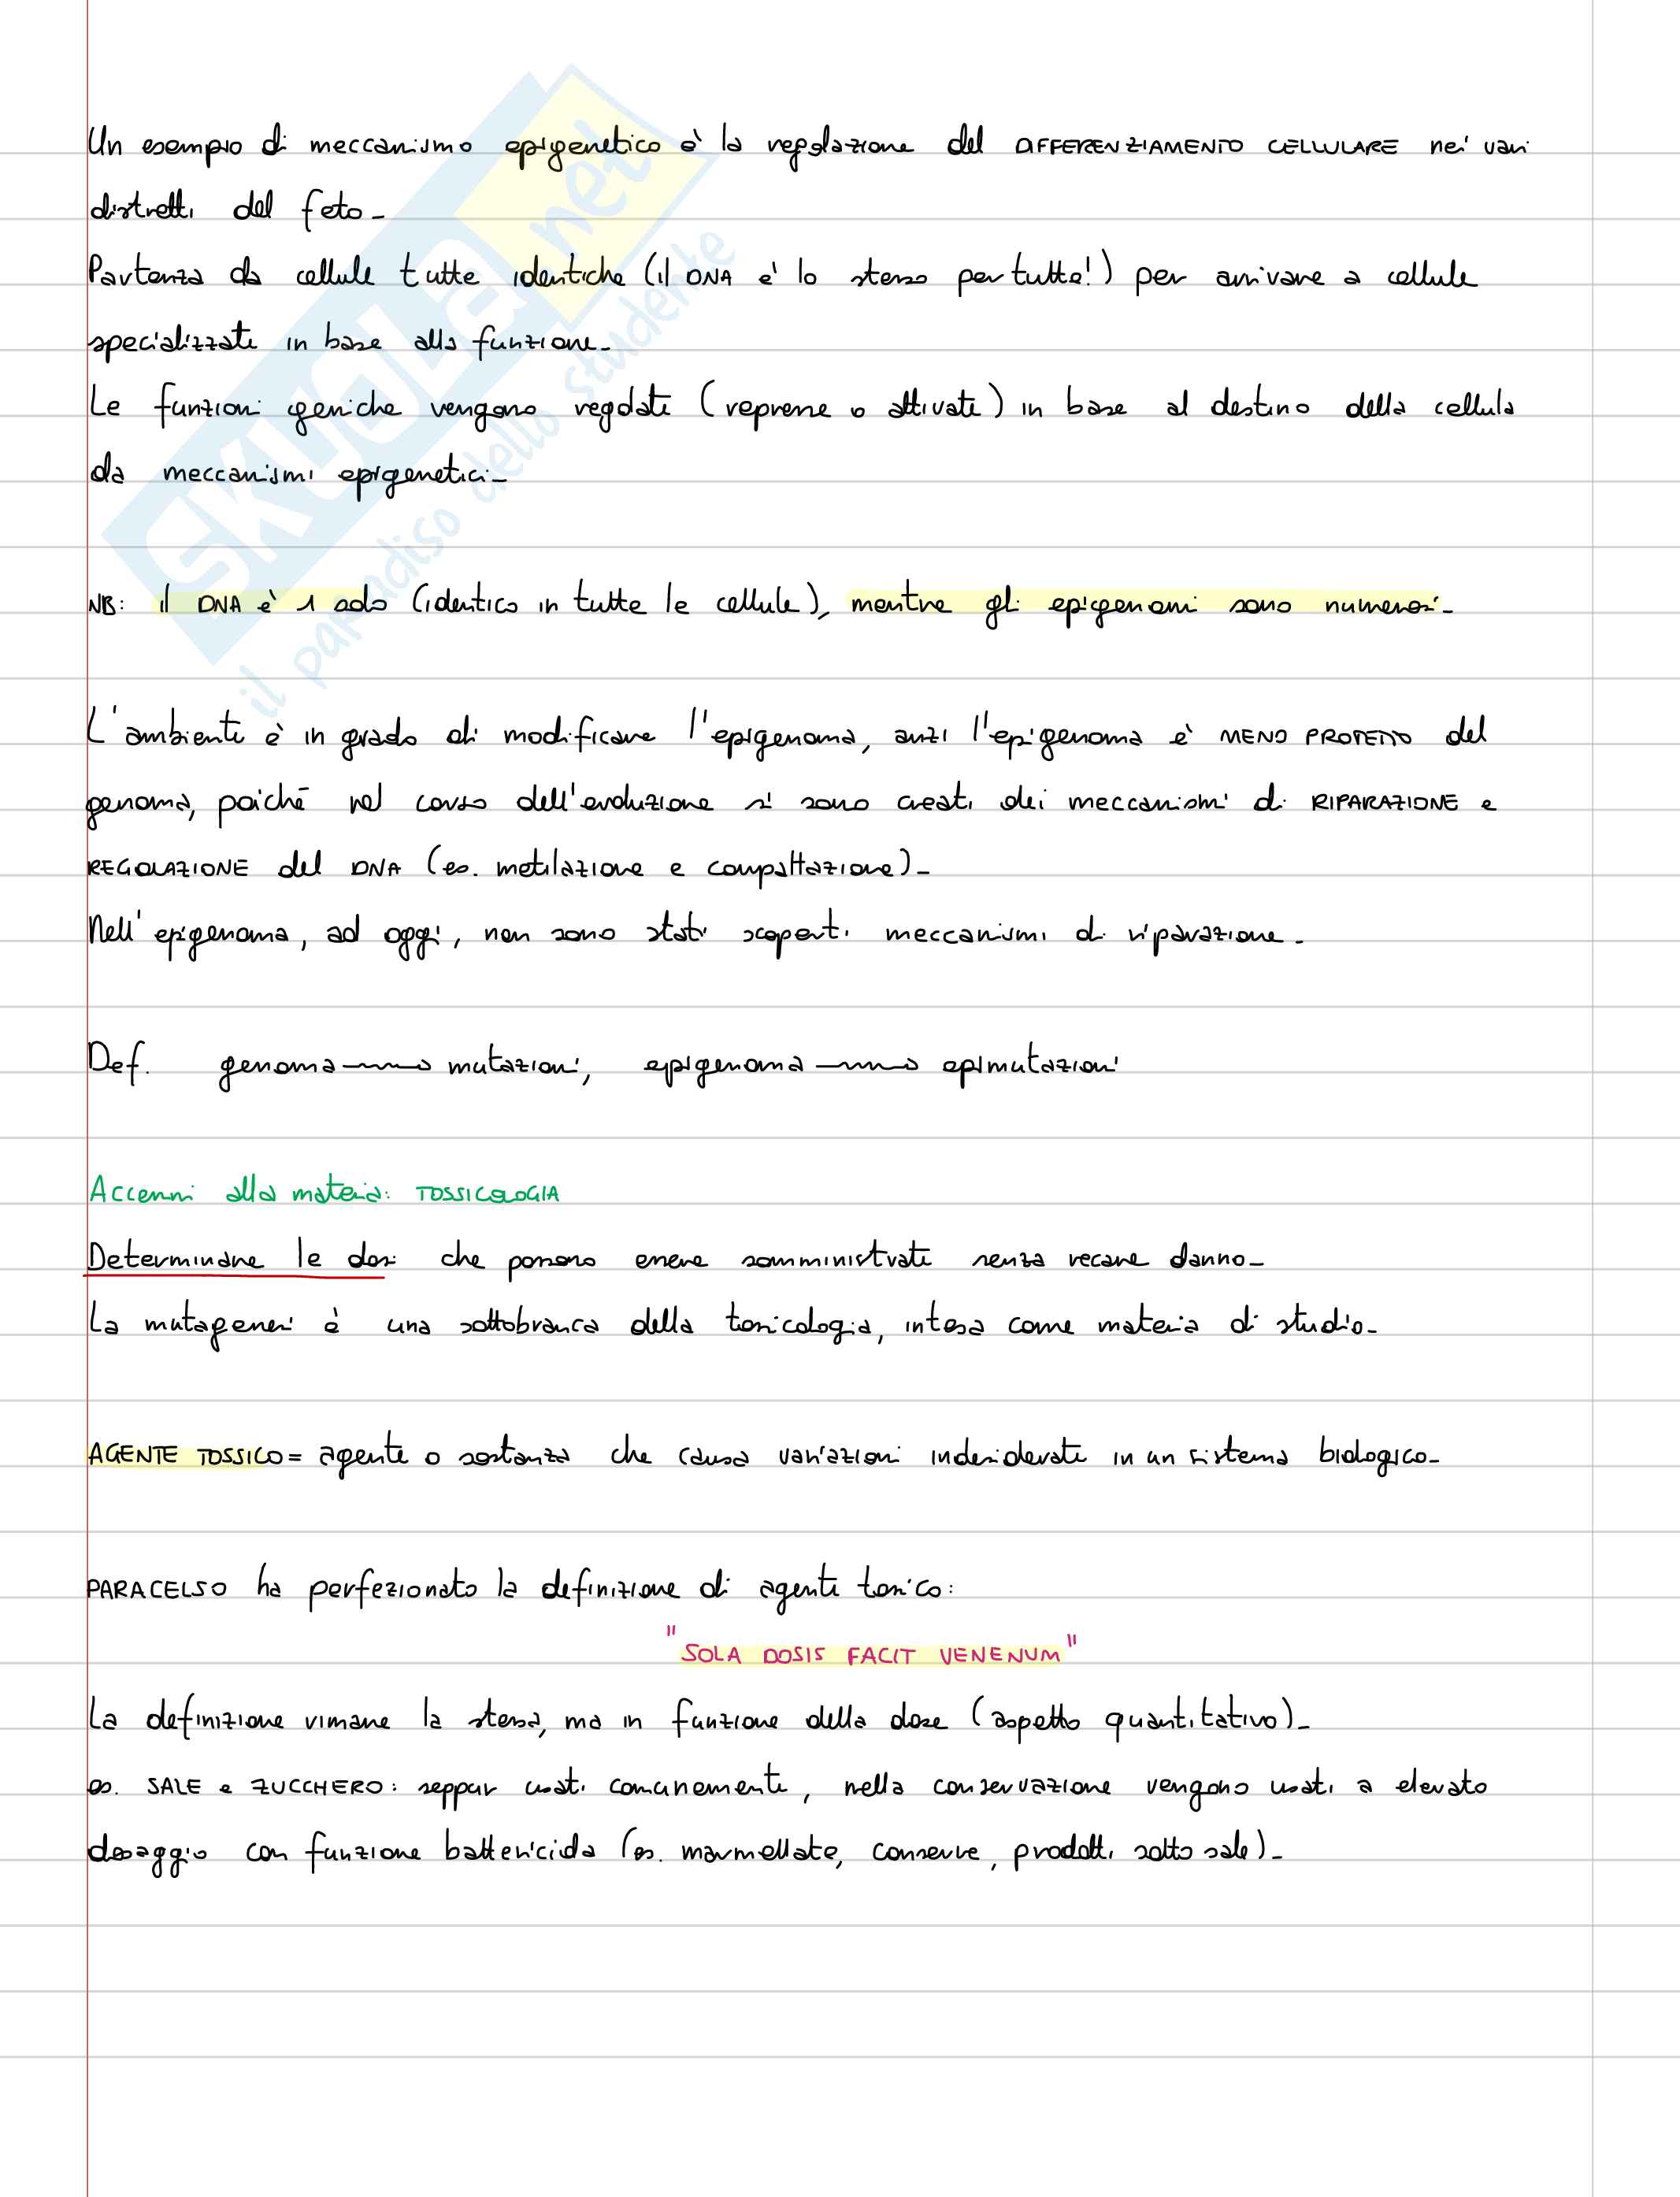 Un esempio di meccanismo epigenetico è la regolazione del DIFFERENZIAMENTO CELLULARE nei vari
distretti del feto_
Partenza da cellule tutte identiche (il DNA è lo stesso per tutte!) per arrivare a cellule
specializzate in base alla funzione_
Le funzioni geniche vengono regolate (represse o attivate) in base al destino della cellula
da meccanismi epigenetici_
NB: il DNA è 1 solo (identico in tutte le cellule), mentre gli epigenomi sono numerosi_
L'ambiente è in grado di modificare l'epigenoma, anzi l'epigenoma è MENO PROTETTO del
genoma, poiché nel corso dell'evoluzione si sono creati dei meccanismi di RIPARAZIONE e
REGOLAZIONE del DNA (es. metilazione e compattazione)_
Nell'epigenoma, ad oggi, non sono stati scoperti meccanismi di riparazione_
Def. genoma → mutazioni, epigenoma → epimutazioni
Accenni alla materia: TOSSICOLOGIA
Determinare le dosi che possono essere somministrate senza recare danno_
La mutagenesi è una sottobranca della tossicologia, intesa come materia di studio_
AGENTE TOSSICO = agente o sostanza che causa variazioni indesiderate in un sistema biologico_
PARACELSO ha perfezionato la definizione di agente tossico:
"SOLA DOSIS FACIT VENENUM"
La definizione rimane la stessa, ma in funzione della dose (aspetto quantitativo)_
es. SALE e ZUCCHERO: seppur usati comunemente, nella conservazione vengono usati a elevato
dosaggio con funzione battericida (es. marmellate, conserve, prodotti sotto sale)_
SKUOLA.net
il paradiso dello studente